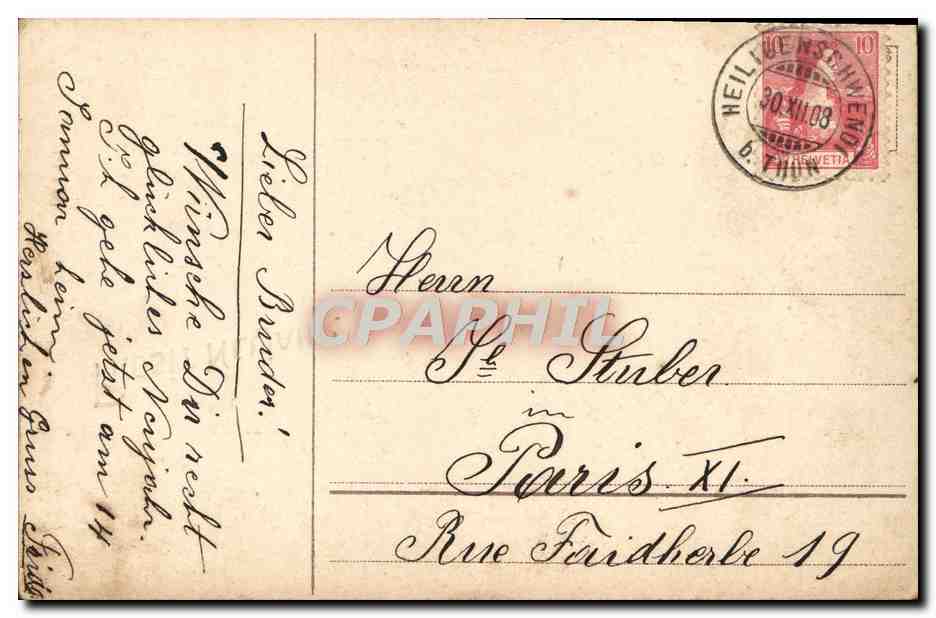 Lieber Bruder!
Wünsche Dir recht
glückliches Neujahr.
Ich gehe jetzt am 14
Januar heim
Herzlichen Gruss Fridy
10 10
HELVETIA
HEILIGENSCHWENDI
30.XII.08
b. THUN
Herrn
Sl Stuber
in
Paris. XI.
Rue Faidherbe 19
CPARHIL